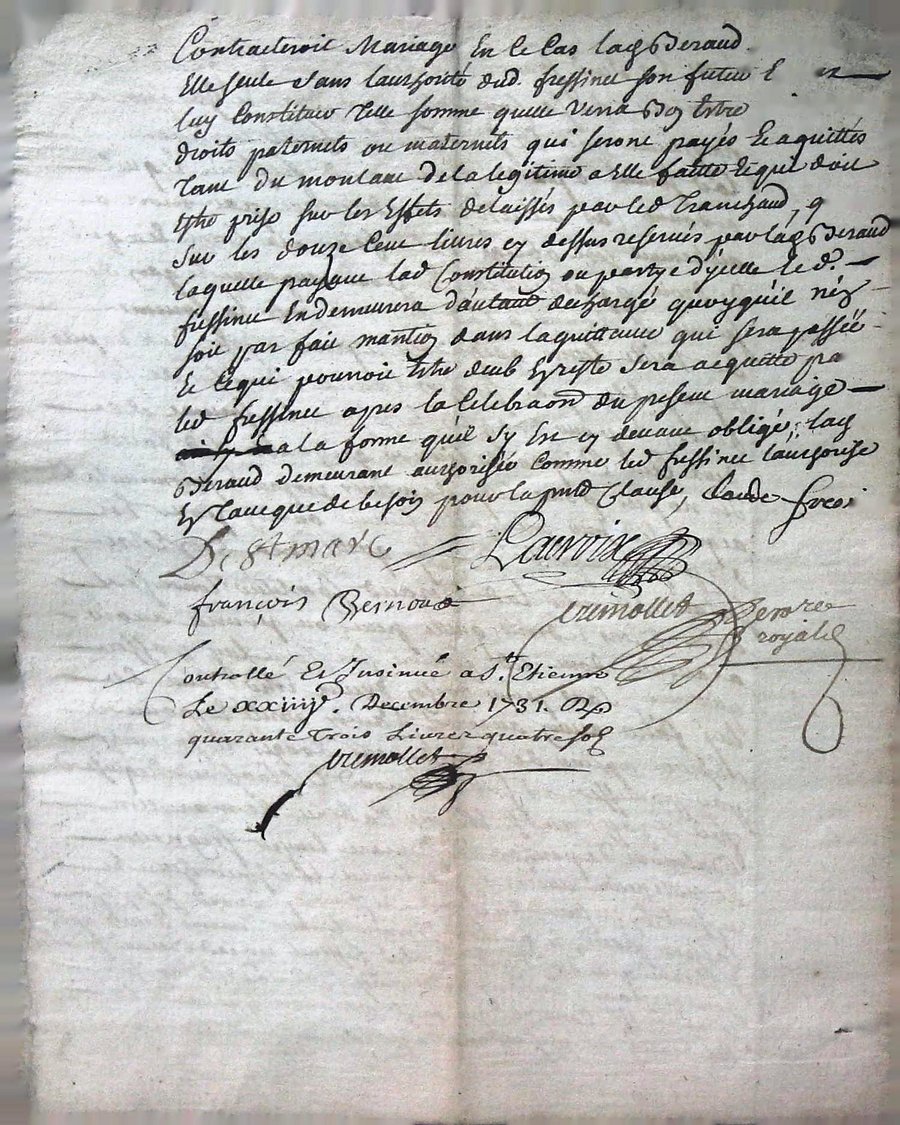 Contracteroit Mariage En ce Cas lad Beraud
Elle seule sans lauthorité dud. fressinet son futeur E
luy Constituer Telle somme quelle verra bon Estre
droits paternels ou maternels qui seront payés Et aquittés
Tant du montant de la legitime a Elle faitte Et qui doit
Estre prise sur les Effets delaissés par led Tranchand, q
sur les douze Cent livres cy dessus reservés par lad Beraud
laquelle payant lad Constitution ou partye d'ycelle Led. -
fressinet En demeurera dautant dechargé quoyquil n'en
soit pas fait mantion dans la quittance qui sera passée
Et Ce qui pourroit Estre deub Ez reste sera acquitté pa
led fressinet apres la Celebraon du present mariage -
a la forme qu'il s'y En cy devant obligé; lad
Beraud demeurant authorisée comme led fressinet l'authorise
Ez Tant que de besoin pour la pnte Clause, Claude
De St marc Lacroix
françois Bernou
Trimollet
royal
Controllé Et Insinué a St. Etienne
Le xxiiiie. Decembre 1731. R
quarante Trois Livres quatre sols
Trimollet